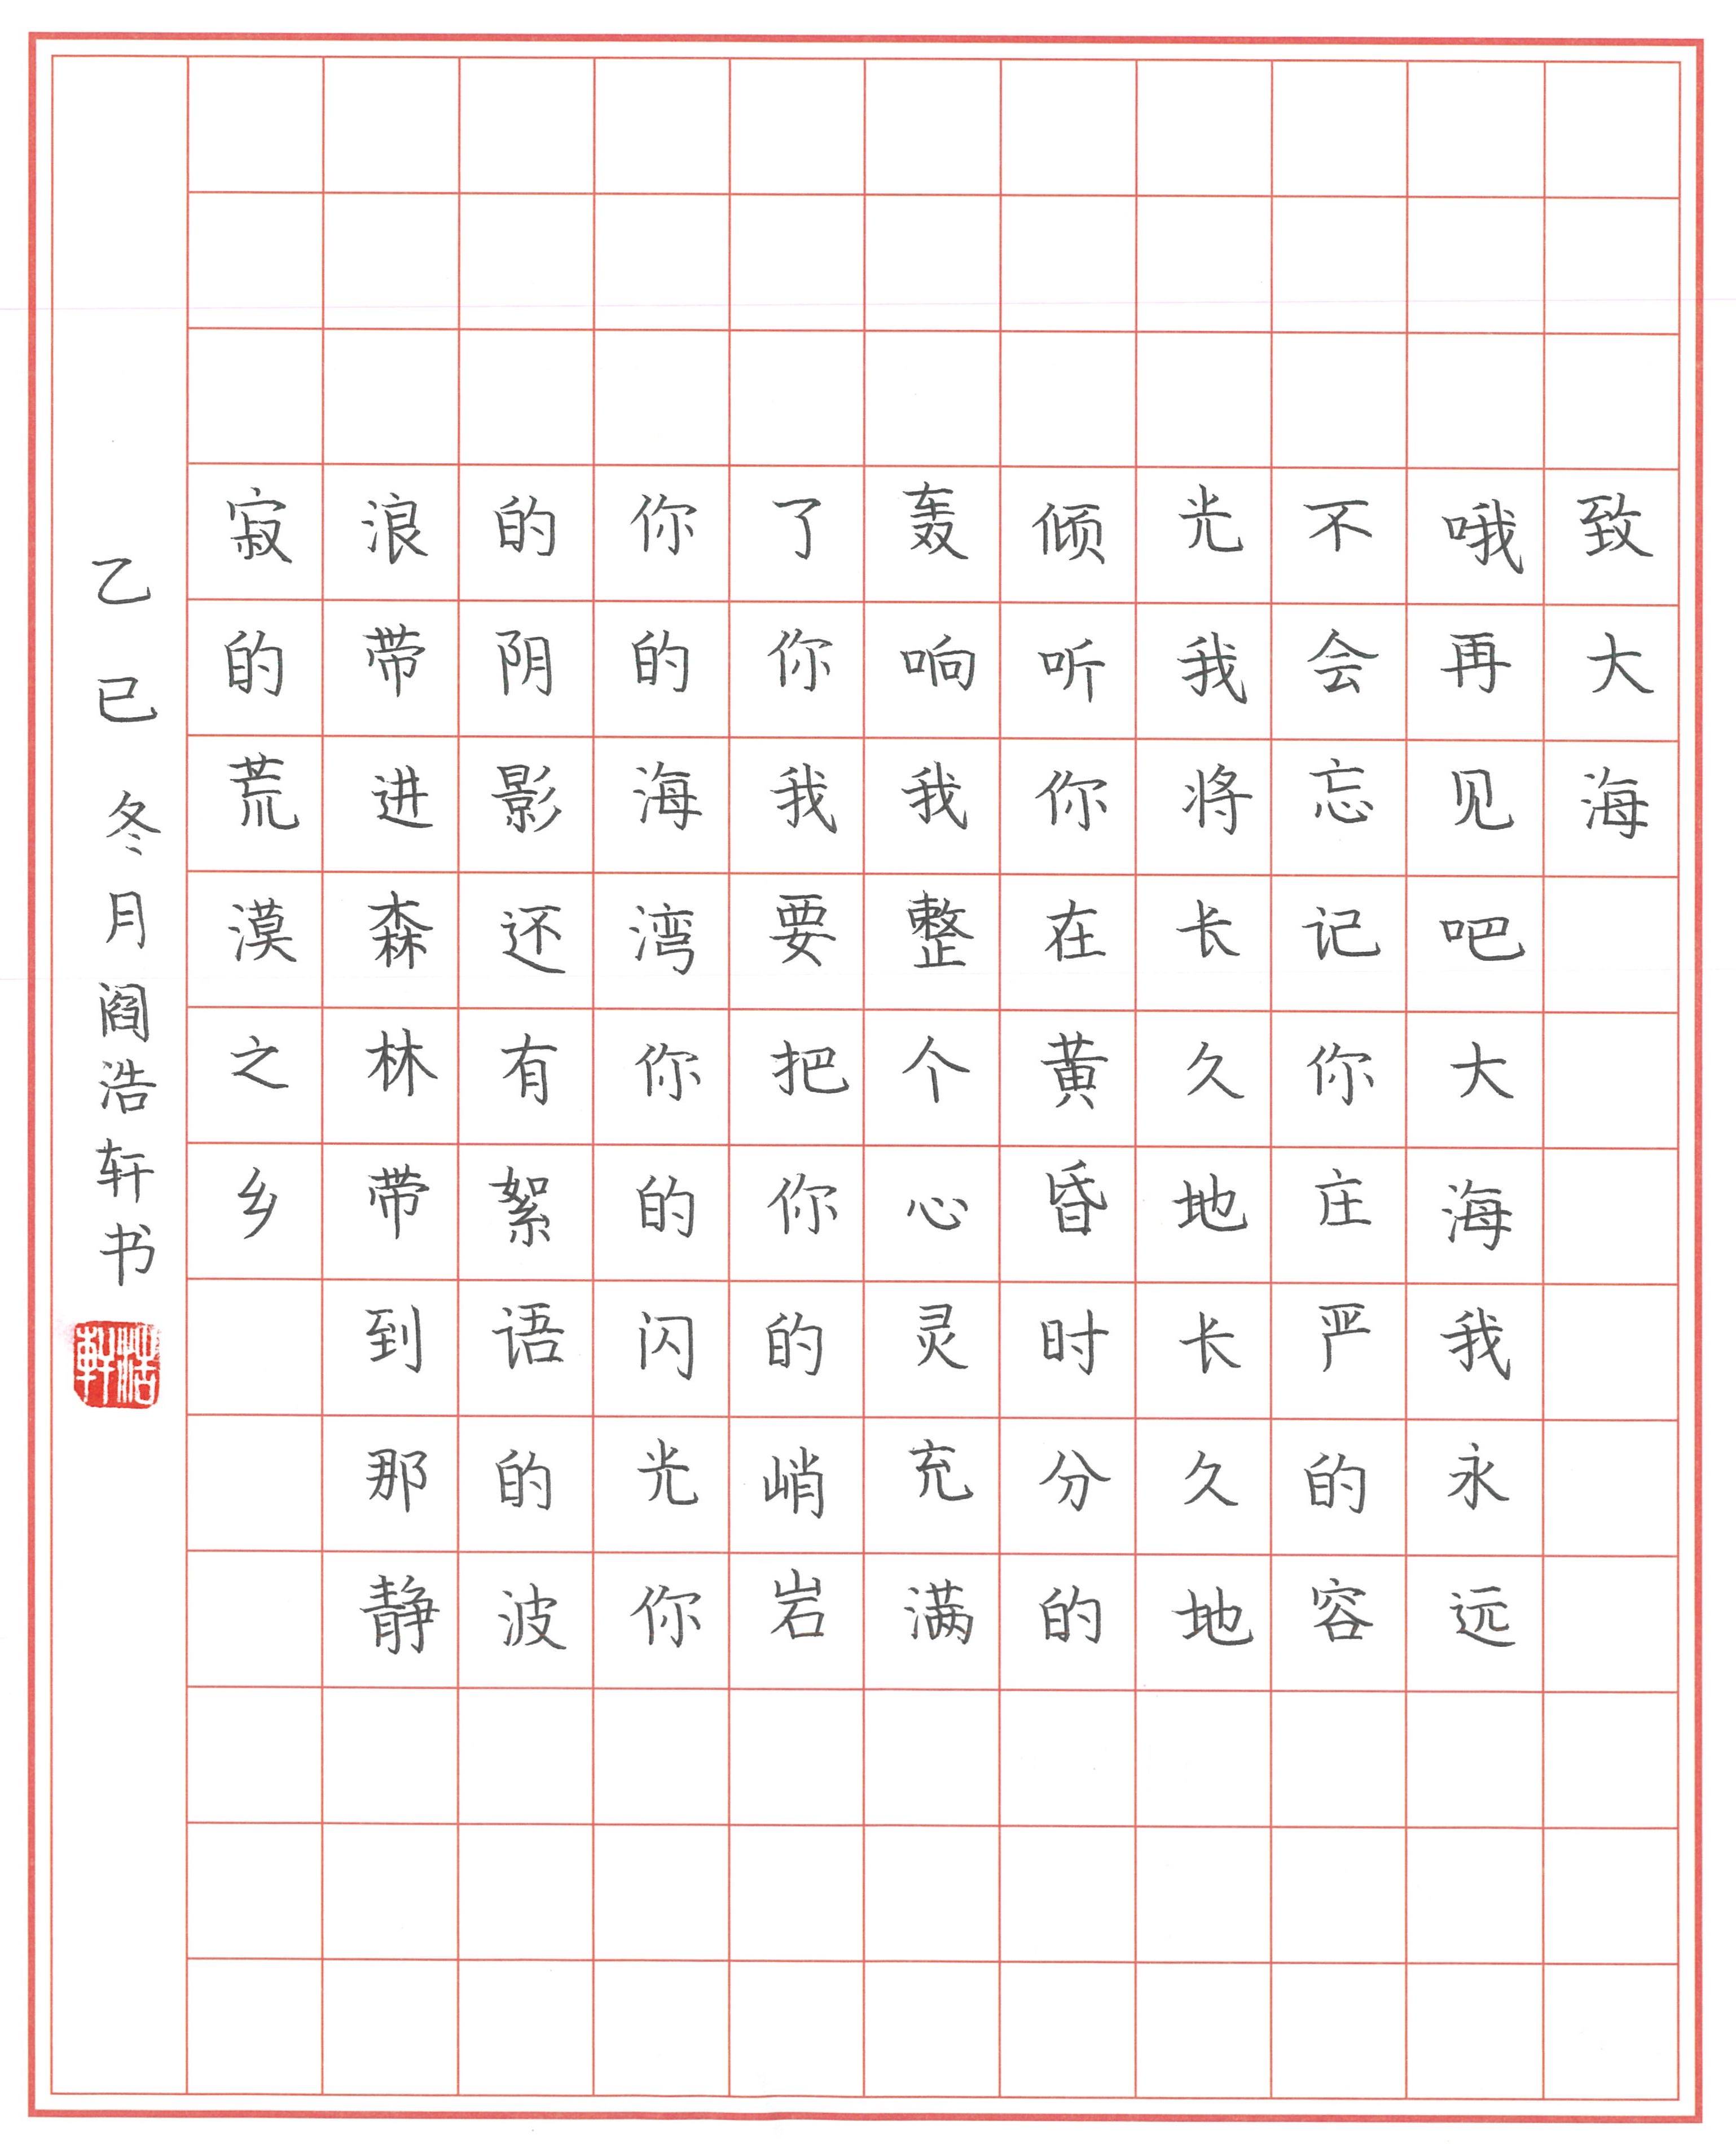 致大海
哦再见吧大海我永远
不会忘记你庄严的容
光我将长久地长久地
倾听你在黄昏时分的
轰响我整个心灵充满
了你我要把你的峭岩
你的海湾你的闪光你
的阴影还有絮语的波
浪带进森林带到那静
寂的荒漠之乡
乙巳冬月阎浩轩书
浩軒